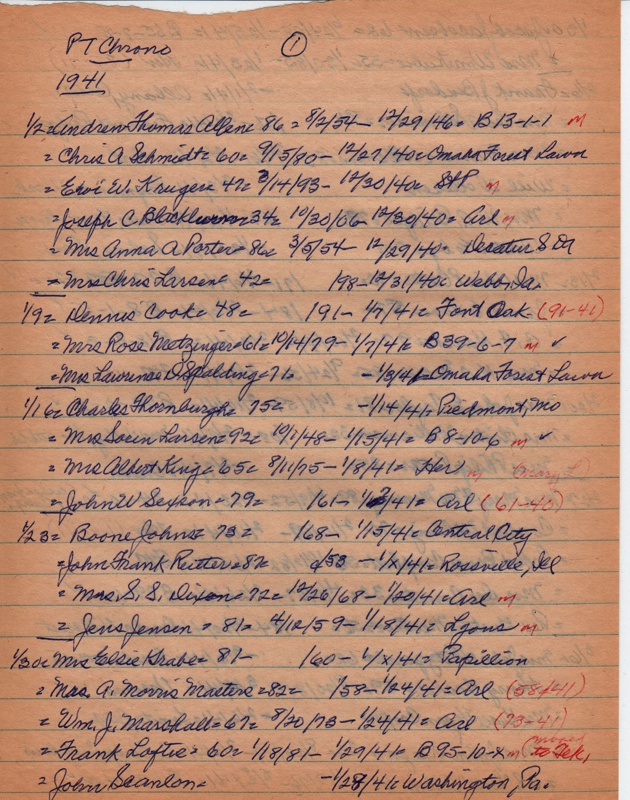 PT Chrono ①
1941
1/2 = Andrew Thomas Allen = 86 = 8/2/54 - 12/29/46 = B 13-1-1 m
= Chris A Schmidt = 60 = 9/15/80 - 12/27/40 = Omaha Forest Lawn
= W. Kruger = 47 = 3/14/93 - 12/30/40 = m
= Joseph C Blackburn = 34 = 10/30/06 - 12/30/40 = Arl m
= Mrs Anna A Porter = 86 = 3/5/54 - 12/29/40 = Decatur S Da
= Mrs Chris Larsen = 42 = 198 - 12/31/40 = Webb, Ia.
1/9 = Dennis Cook = 48 = 191 - 1/7/41 = Font Oak - (91-41)
= Mrs Rose Metzinger = 61 = 10/14/79 - 1/7/41 = B39-6-7 m ✓
= Mrs Lawrence D Spalding = 71 - 1/3/41 - Omaha Forest Lawn
1/16 = Charles Thornburgh = 75 = - 1/14/41 = Piedmont, Mo
= Mrs Soren Larsen = 92 = 10/1/48 - 1/15/41 = B 8-10-6 m ✓
= Mrs Albert King = 65 = 8/11/75 - 1/8/41 = Her m (Mary F)
= John W Sexson = 79 = 161 - /41 = Arl (61-40)
1/23 = Boone Johns = 73 = 168 - 1/15/41 = Central City
= John Frank Reitter = 87 53 - 1/x/41 = Rossville, Ill
= Mrs. S. S. Dixon = 72 = 12/26/68 - 1/20/41 = Arl m
= Jens Jensen = 81 = 4/12/59 - 1/18/41 = Lyons m
1/30 = Mrs Elsie Grabe = 81 - 160 - 1/x/41 = Papillion
= Mrs. A. Morris Masters = 82 = 1/58 - 1/24/41 = Arl (58-41)
= Wm. J. Marshall = 67 = 8/20/73 - 1/24/41 = Arl (73-41)
= Frank Loftis = 60 = 1/18/81 - 1/29/41 = B 95-10-x m moved to Tek,
= John Scanlon = - 1/28/41 = Washington, Pa.